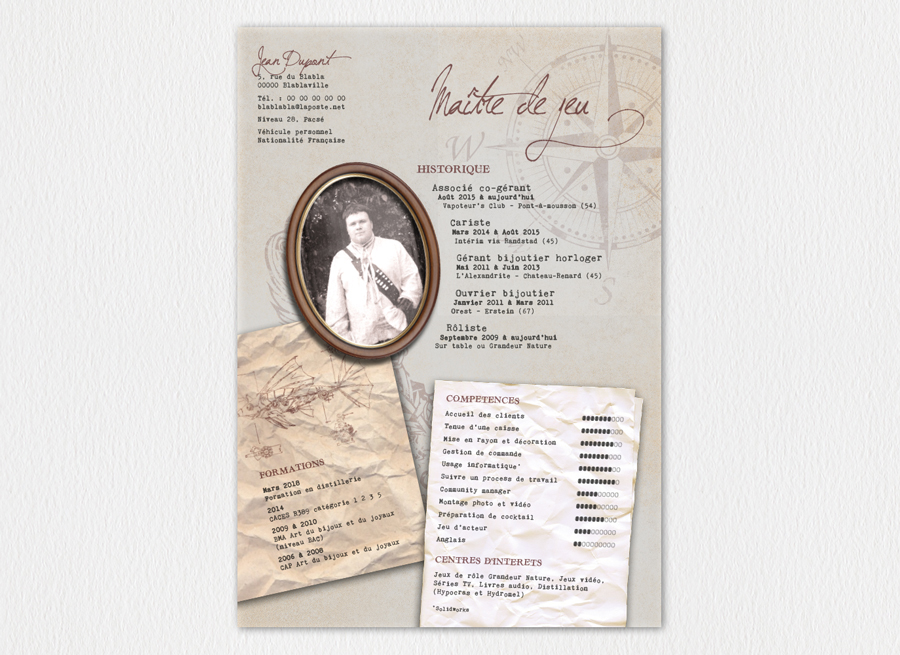 Jean Dupont
5, rue du Blabla
00000 Blablaville
Tél. : 00 00 00 00 00
blablabla@laposte.net
Niveau 28, Pacsé
Véhicule personnel
Nationalité Française
Maître de jeu
NW
W
S
HISTORIQUE
Associé co-gérant
Août 2015 à aujourd'hui
Vapoteur's Club - Pont-à-mousson (54)
Cariste
Mars 2014 à Août 2015
Intérim via Randstad (45)
Gérant bijoutier horloger
Mai 2011 à Juin 2013
L'Alexandrite - Chateau-Renard (45)
Ouvrier bijoutier
Janvier 2011 à Mars 2011
Orest - Erstein (67)
Rôliste
Septembre 2009 à aujourd'hui
Sur table ou Grandeur Nature
FORMATIONS
Mars 2018
Formation en distillerie
2014
CACES R389 catégorie 1 2 3 5
2009 à 2010
BMA Art du bijoux et du joyaux
(niveau BAC)
2006 à 2008
CAP Art du bijoux et du joyaux
COMPETENCES
Accueil des clients
Tenue d'une caisse
Mise en rayon et décoration
Gestion de commande
Usage informatique*
Suivre un process de travail
Community manager
Montage photo et vidéo
Préparation de cocktail
Jeu d'acteur
Anglais
CENTRES D'INTERETS
Jeux de rôle Grandeur Nature, Jeux vidéo,
Séries TV, Livres audio, Distillation
(Hypocras et Hydromel)
*Solidworks